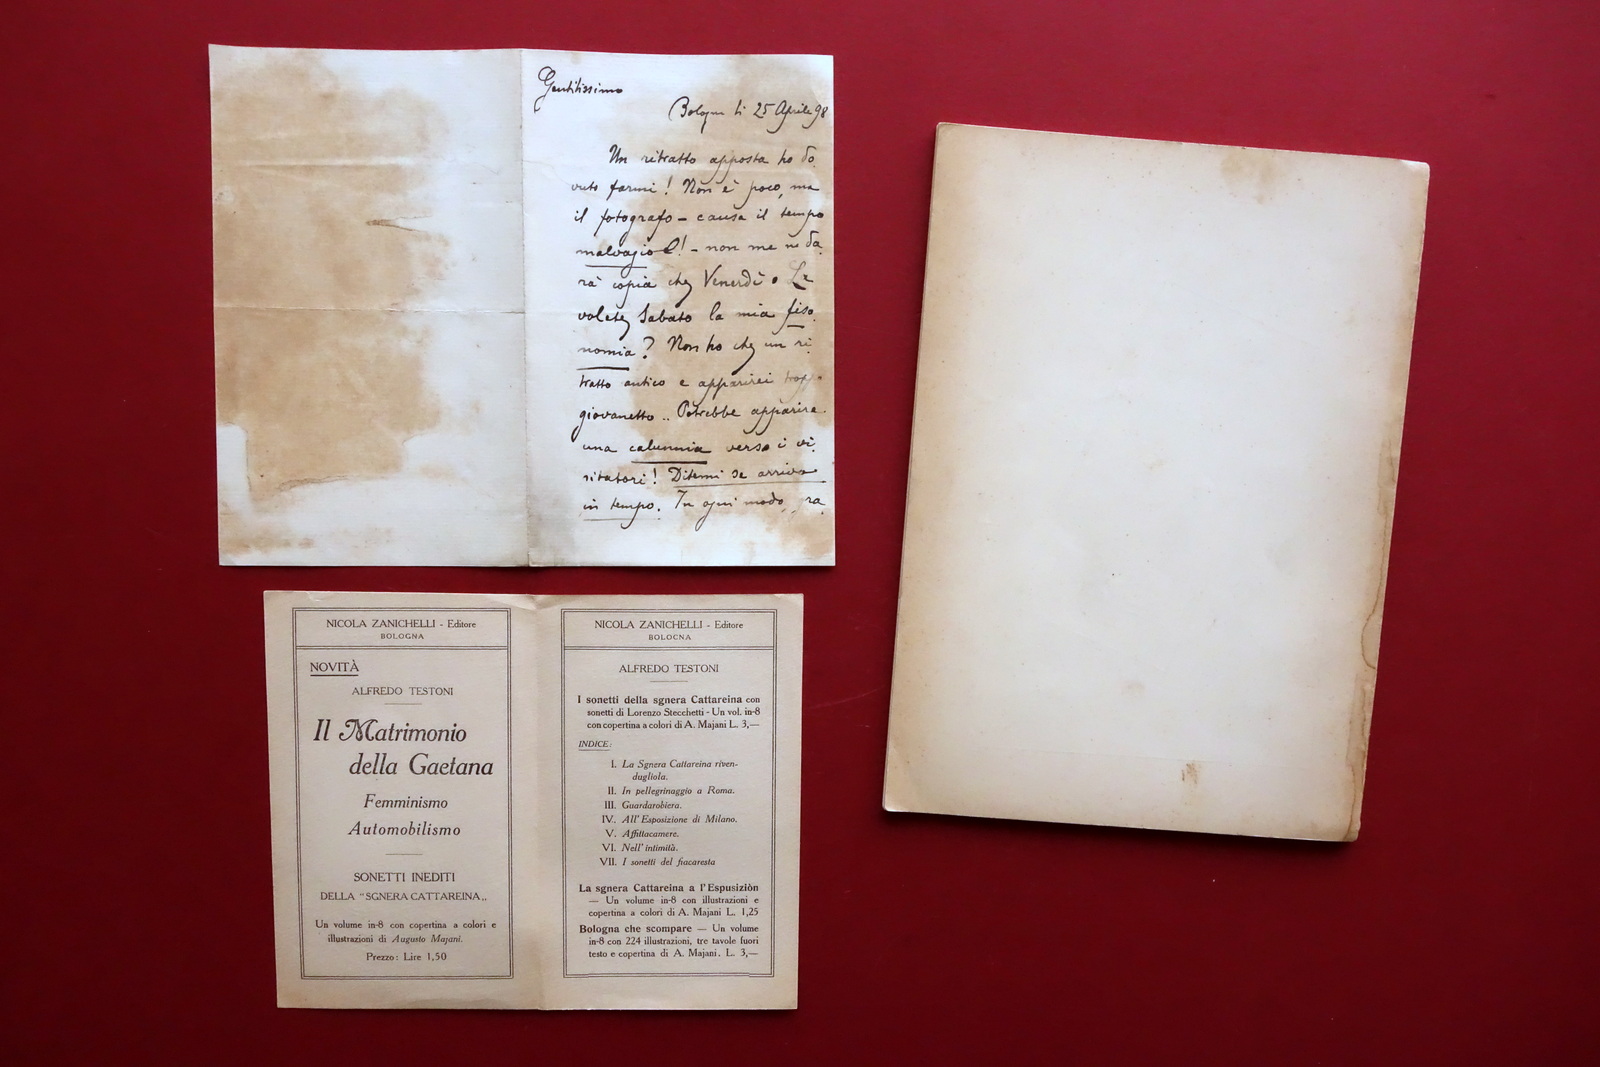 Gentilissimo
Bologna li 25 Aprile 98
Un ritratto apposta ho do
vuto farmi! Non è poco, ma
il fotografo - causa il tempo
malvagio! - non me ne da
rà copia che Venerdì. Lo
volete Sabato la mia fiso
nomia? Non ho che un ri
tratto antico e apparirei tropp
giovanetto.. Potrebbe apparire
una calunnia verso i vi
sitatori! Ditemi se arriva
in tempo. In ogni modo, gra
NICOLA ZANICHELLI - Editore
BOLOGNA
NOVITÀ
ALFREDO TESTONI
Il Matrimonio
della Gaetana
Femminismo
Automobilismo
SONETTI INEDITI
DELLA "SGNERA CATTAREINA„
Un volume in-8 con copertina a colori e
illustrazioni di Augusto Majani.
Prezzo: Lire 1,50
NICOLA ZANICHELLI - Editore
BOLOGNA
ALFREDO TESTONI
I sonetti della sgnera Cattareina con
sonetti di Lorenzo Stecchetti - Un vol. in-8
con copertina a colori di A. Majani L. 3,—
INDICE:
I. La Sgnera Cattareina riven-
dugliola.
II. In pellegrinaggio a Roma.
III. Guardarobiera.
IV. All'Esposizione di Milano.
V. Affittacamere.
VI. Nell'intimità.
VII. I sonetti del fiacaresta
La sgnera Cattareina a l'Espusiziòn
— Un volume in-8 con illustrazioni e
copertina a colori di A. Majani L. 1,25
Bologna che scompare — Un volume
in-8 con 224 illustrazioni, tre tavole fuori
testo e copertina di A. Majani. L. 3,—